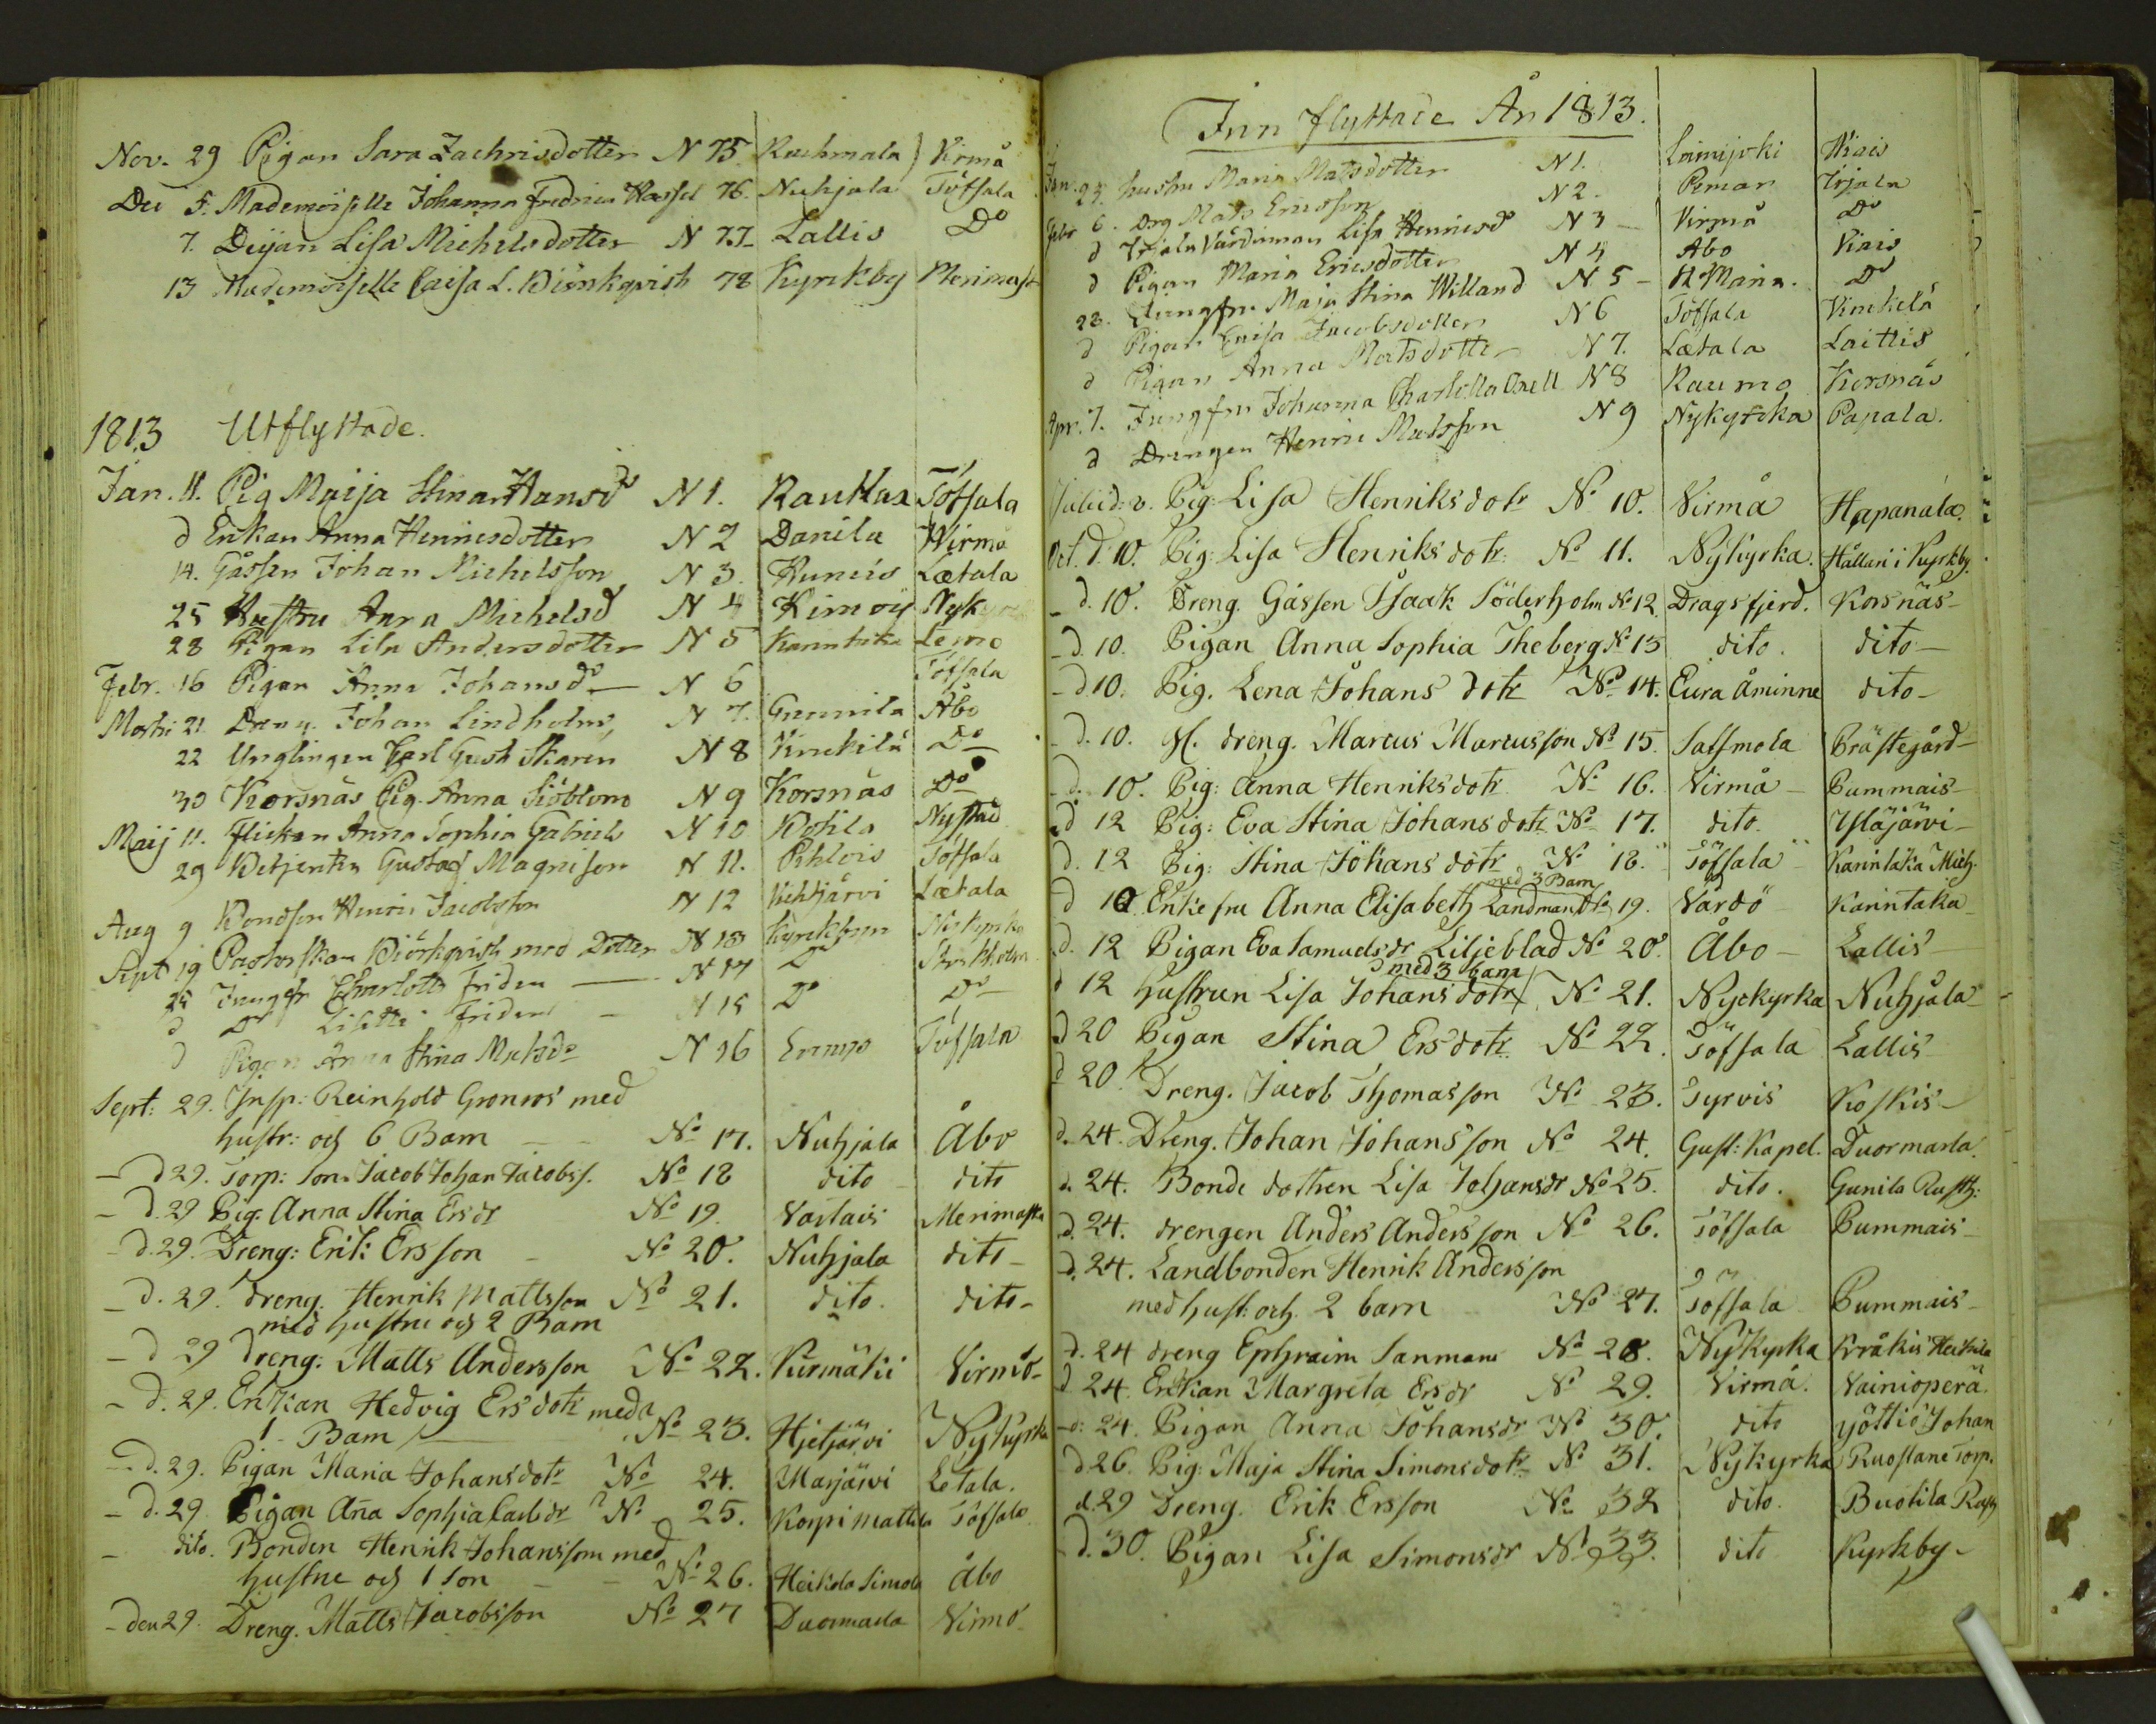 Nov. 29 Pigan Sara Zachrisdotter N 75 Rachmala Virmå
Dec 5. Mademoiselle Johanna Fredrica Hassel 76. Nuhjala Töfsala
7. Deijan Lisa Michelsdotter N 77 Lallis Do
13 Mademoiselle Caisa L. Biörnkqvist 78 Kyrckby Merimask
1813 Utflyttade.
Jan. 11. Pig Maija Stina Hansdr N 1. Raukka Töfsala
d Enkan Anna Henricsdotter N 2 Danila Wirmå
14. Gåssen Johan Michelsson N 3. Hunois Lætala
25 Hustru Anna Michelsd N 4 Kimoij Nykyrk
28 Pigan Lisa Andersdotter N 5 Kanntaka Lemo
Febr. 16 Pigan Anna Johansdr N 6 Töfsala
Marti 21 Dreng. Johan Lindholm N 7. Gunnila Åbo
22 Unglingen Carl Gust Skarin N 8 Vinckilä Do
30 Korsnäs Pig. Anna Siöblom N 9 Korsnäs Do
Maij 11. Flickan Anna Sophia Gabriels N 10 Kotila Nystad
29 Betjenten Gustaf Magnisson N 11. Pehlois Töfsala
Aug 9 Bondson Henric Jacobsson N 12 Kehtjärvi Lætala
Sept 19 Pastorskan Biörkqvist med Dotter N 13 Kyrckbyn Nykyrko
25 Jungfr Charlotta Friden N 14 Do Stockholm
d Do Lisette Friden N 15 Do Do
d Pigan Anna Stina Matsdr N 16 Töfsala
Sept: 29. Insp: Reinhold Gronroos med
hustr: och 6 Barn No 17. Nuhjala Åbo
d 29. Torp: Son Jacob Johan Jacobss. No 18 dito dito
d. 29 Pig. Anna Stina Ersdr No 19. Vastais Merimasku
d. 29. Dreng: Erik Ersson No 20. Nuhjala dito
d. 29. Dreng. Henrik Mattsson No 21. dito. dito
med hustru och 2 Barn
d 29 Dreng: Matts Andersson No 22. Virmo
d. 29. Enkan Hedvig Ersdotr med
1 Barn No 23. Hjetjärvi Nykyrka
d. 29. Pigan Maria Johansdotr No 24. Marjärvi Letala.
d. 29 Pigan Ana Sophia Carlsdr No 25. Korpi mattila Töfsala
dito. Bonden Henrik Johansson med
hustru och 1 Son No 26. Heikola Simola Åbo
den 29. Dreng. Matts Jacobsson No 27 Duormarla Virmo
Inn flyttade År 1813.
Jan. 24. hustru Maria Matsdotter N 1. Loimijoki Wiais
Febr 6. Drg Mats Ericsson N 2. Pemar Irjala
d Irjala Värdinnan Lisa Henricsdr N 3 Virmå Do
d Pigan Maria Ericsdotter N 4 Åbo Wiais
28. Jungfru Maja Stina Willand N 5 St Maria. Do
d Pigan Caisa Jacobsdotter N 6 Töfsala Vinckilä
d Pigan Anna Matsdotter N 7. Lætala Laittis
Apr. 7. Jungfru Johanna Charlotta N 8 Raumo Korsnäs
d Drengen Henric Matsson N 9 Nykyrcka Papala.
Julii d: 3. Pig: Lisa Henriksdotr No 10. Virmå Hapanala.
Oct. d. 10. Pig: Lisa Henriksdotr. No 11. Nykyrka. Hållari i Kyrkby.
d. 10. Dreng. Gåssen Isaak Söderholm No 12. Dragsfjerd. Korsnäs
d. 10. Pigan Anna Sophia Theberg No 13 dito. dito
d 10. Pig. Lena Johans dotr No 14. Eura Åminne dito
d. 10. H. dreng. Marcus Marcusson No 15. Satsmola Prästegård
d. 10. Pig: Anna Henriksdotr No 16. Virmå Pummais
d 12 Pig: Eva Stina Johansdotr No 17. dito. Yläjärvi
d. 12 Pig: Stina Johans dotr No 18. Töfsala Kanntaka Mich.
med 3 Barn
d 12 Enke fru Anna Elisabeth Landman No 19. Vårdö Kanntaka
d. 12 Pigan Eva Samuelsdr Liljeblad No 20. Åbo Lallis
med 3 barn
d 12 hustrun Lisa Johansdotr No 21. Nyckyrka Nuhjala
d 20 Pigan Stina Ersdotr No 22. Töfsala Lallis
d 20. Dreng. Jacob Thomasson No 23. Tyrvis Koskis
d. 24. Dreng. Johan Johansson No 24. Gust: Kapel. Duormarla.
d. 24. Bonde dottren Lisa Johansdr No 25. dito. Gunila Rusth:
d. 24. drengen Anders Andersson No 26. Töfsala Pummais
d. 24. Landbonden Henrik Andersson
med hust: och 2 barn No 27. Töfsala Pummais
d. 24 dreng Ephraim Sanman No 28. Nykyrka Kråkis Heikola
d 24. Enkan Margreta Ersdr No 29. Virmå. Vainioperä.
d: 24. Pigan Anna Johansdr No 30. dito Yöttiö Johan
d 26. Pig: Maja Stina Simonsdotr No 31. Nykyrka Ruostane Torp.
d. 29 Dreng. Erik Ersson No 32 dito. Buotila
d. 30. Pigan Lisa Simonsdr No 33. dito Kyrkby